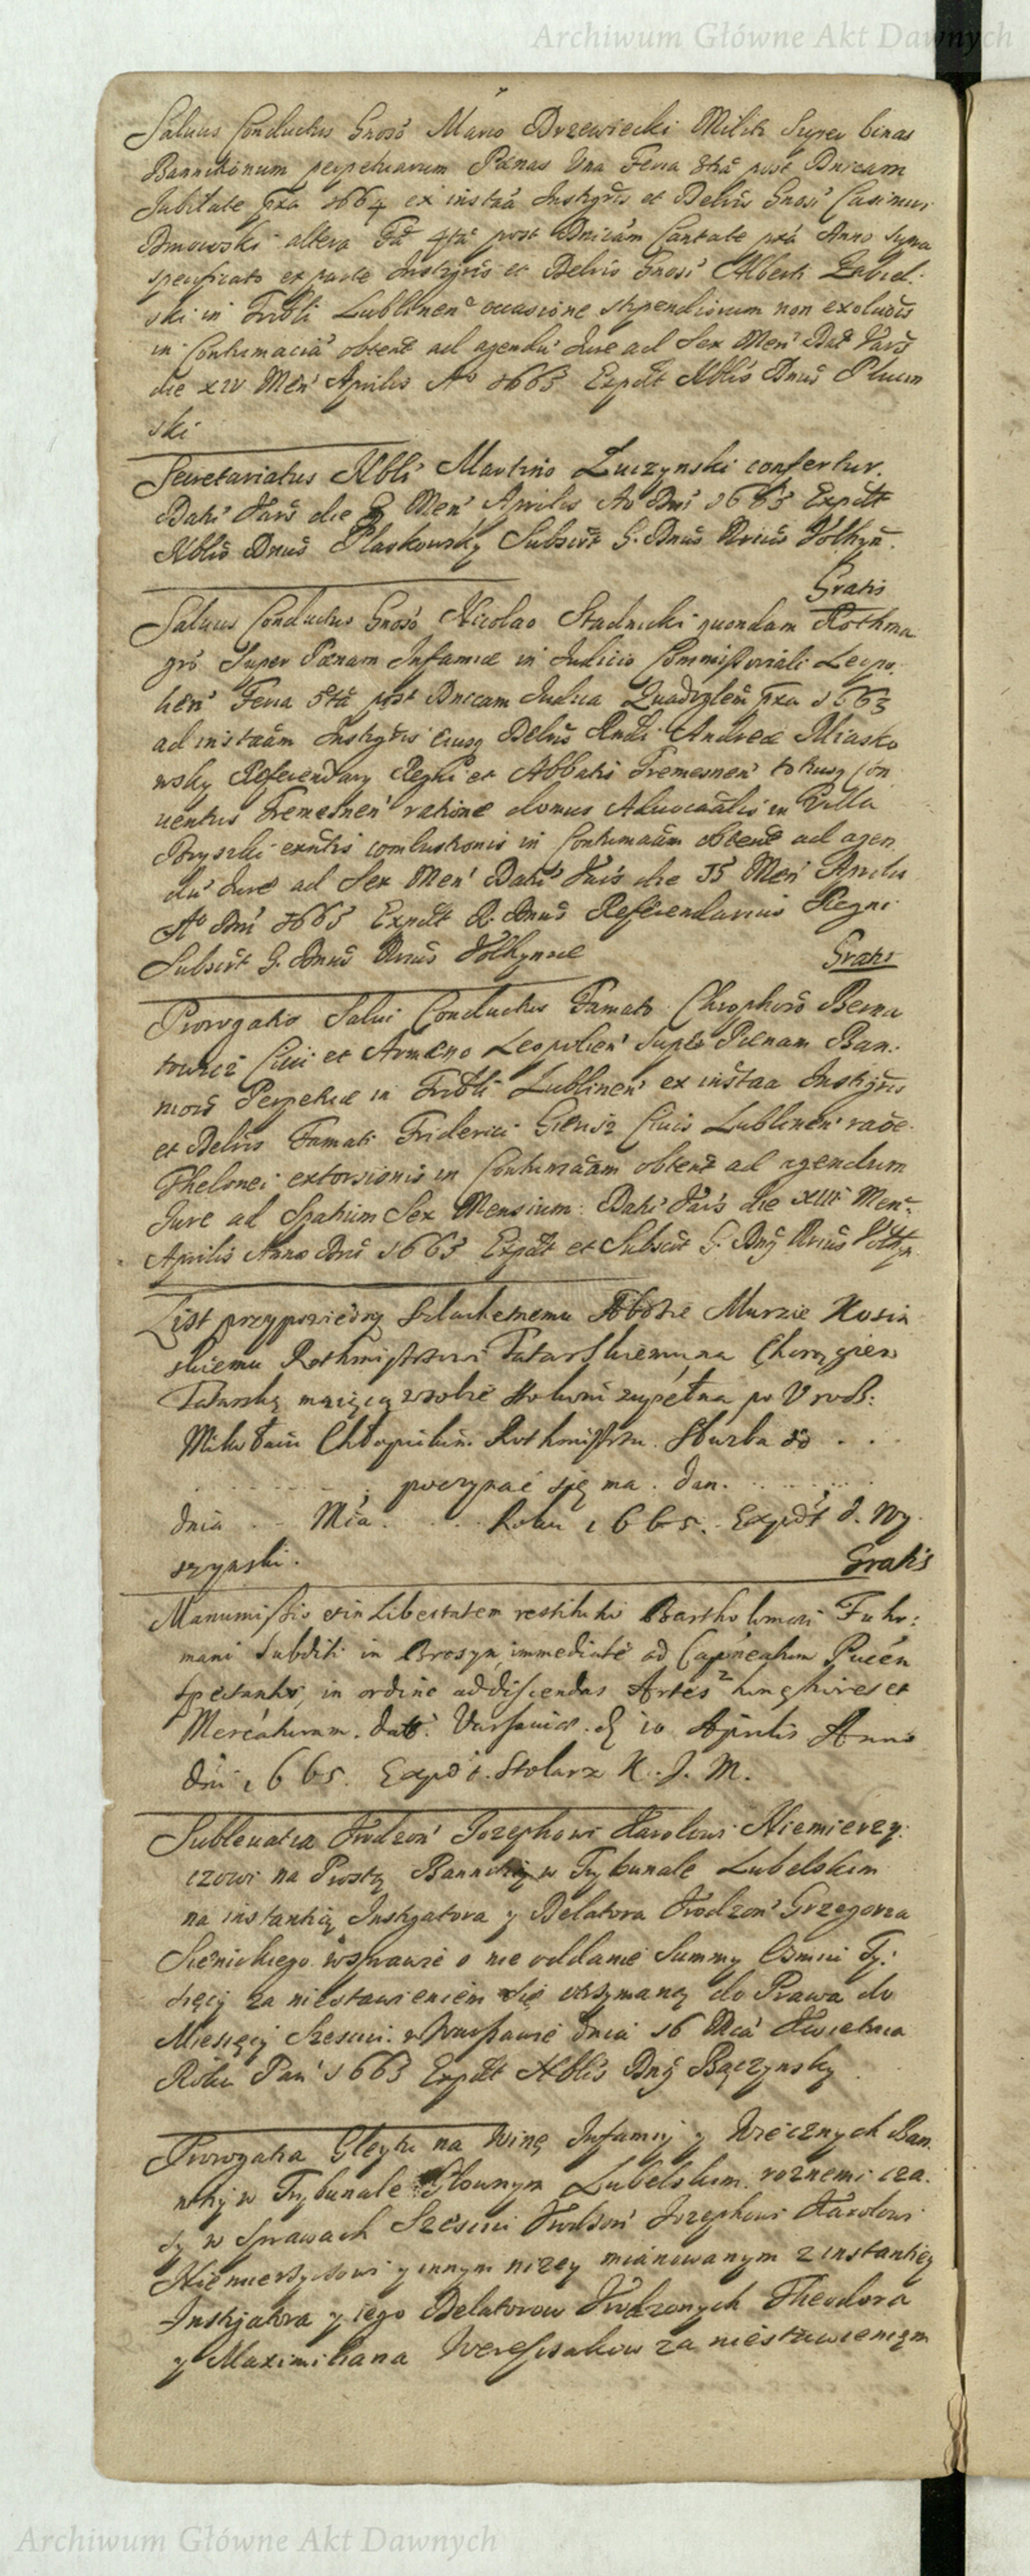 Archiwum Główne Akt Dawnych
Salvus Conductus Gnoso Marco Brzewiecki Militi Super binas
Bannitionum perpetuarum Pænas Una Feria post Dnicam
Jubilate pxa 1664 ex insťaa Instigris et Delris Gnosi Casimiri
altera Fa 4ta post Dnicam Cantate pxa Anno supra
specificato ex parte Instigris et Delris Gnosi Alberti
ski in Tribli Lublinen occasione stipendiorum non exolutis
in Contumacia obtent ad agendu Jure ad Sex Men Dat Vars
die XIV Men Aprilis Ao 1665 Expdt Nblis Dnus
ski
Secretariatus Nbli Martino Zuczynski confertur.
Dati Vars die Men Aprilis Ao Dni 1665 Expdt
Nblis Dnus Plaskowsky Subscrt G. Dnus Volhyn.
Gratis
Salvus Conductus Gnoso Nicolao Stadnicki quondam Rothma
gro Super Pænam Infamiæ in Judicio Commissoriali Leopo
lien Feria 5ta post Dnicam Judica pxa 1663
ad instaam Instigris eiusq Delris Rndi Andreæ Miasko
wsky Referendary Regni et Abbatis Tremesnen totiusq Con
ventus Tremesnen ratione domus in Villa
combustionis in Contumaciam obtent ad agen
du Jure ad Sex Men Dati Vars die 15 Men Aprilis
Ao Dni 1665 Expdt R. Dnus Referendarius Regni
Subscrt G. Dnus Volhyniæ
Gratis
Prorogatio Salvi Conductus Famato Chrophoro Berna
towicz Civi et Armeno Leopolien Super Pœnam Ban-
niois Perpetuæ in Tribli Lublinen ex instaa Instigris
et Delris Famati Friderici Civis Lublinen raoe
Thelonei extorsionis in Contumaciam obtent ad agendum
Jure ad Spatium Sex Mensium. Dati Vars die XIII Men
Aprilis Anno Dni 1665 Expdt et Subscrt G. Dnq
List przypowiedny Szlachetnemu Murzie Kosin
skiemu Rothmistrzowi Tatarskiemu na Chorągiew
Tatarską maiącą w sobie zupełna po Vrodz:
Mikołaiu Rothmistrzu. Służba
poczynać się ma. Dan.
dnia Mca Roku 1665. Expdt d. Wy
szynski.
Gratis
Manumissio et in Libertatem restitutio Bartholomæi Fuhr:
mani Subditi in immediate ad Capneatum Pucen
spectantis, in ordine addiscendas Artes et
Mercaturam. dat: Varsaviæ. d 10 Aprilis Anno
dni 1665. Expdt. Stolarz K. J. M.
Sublevatia Vrodzon Jozephowi Karolowi Niemierzy:
czowi na Prostą w Trybunale Lubelskim
na instantią Instigatora y Delatora Vrodzon Grzegorza
Sienickiego w sprawie o nie oddanie Summy Osmiu Ty:
sięcy za niestawieniem się otrzymaną do Prawa do
Miesięcy Szesciu. w Warszawie dnia 16 Mca Kwietnia
Roku Pan 1665 Expdt Nblis Dnq Bączynsky
Prorogatia Gleytu na Winę Infamij y Wiecznych Ban
nitij w Trybunale Głownym Lubelskim roznemi cza
sy w Sprawach Szesciu Vrodzon Jozephowi Karolowi
Niemierzyczowi y innym nizey mianowanym z instantiej
Instigatora y iego Delatorow Vrodzonych Theodora
y Maximiliana za niestawieniem
Archiwum Główne Akt Dawnych